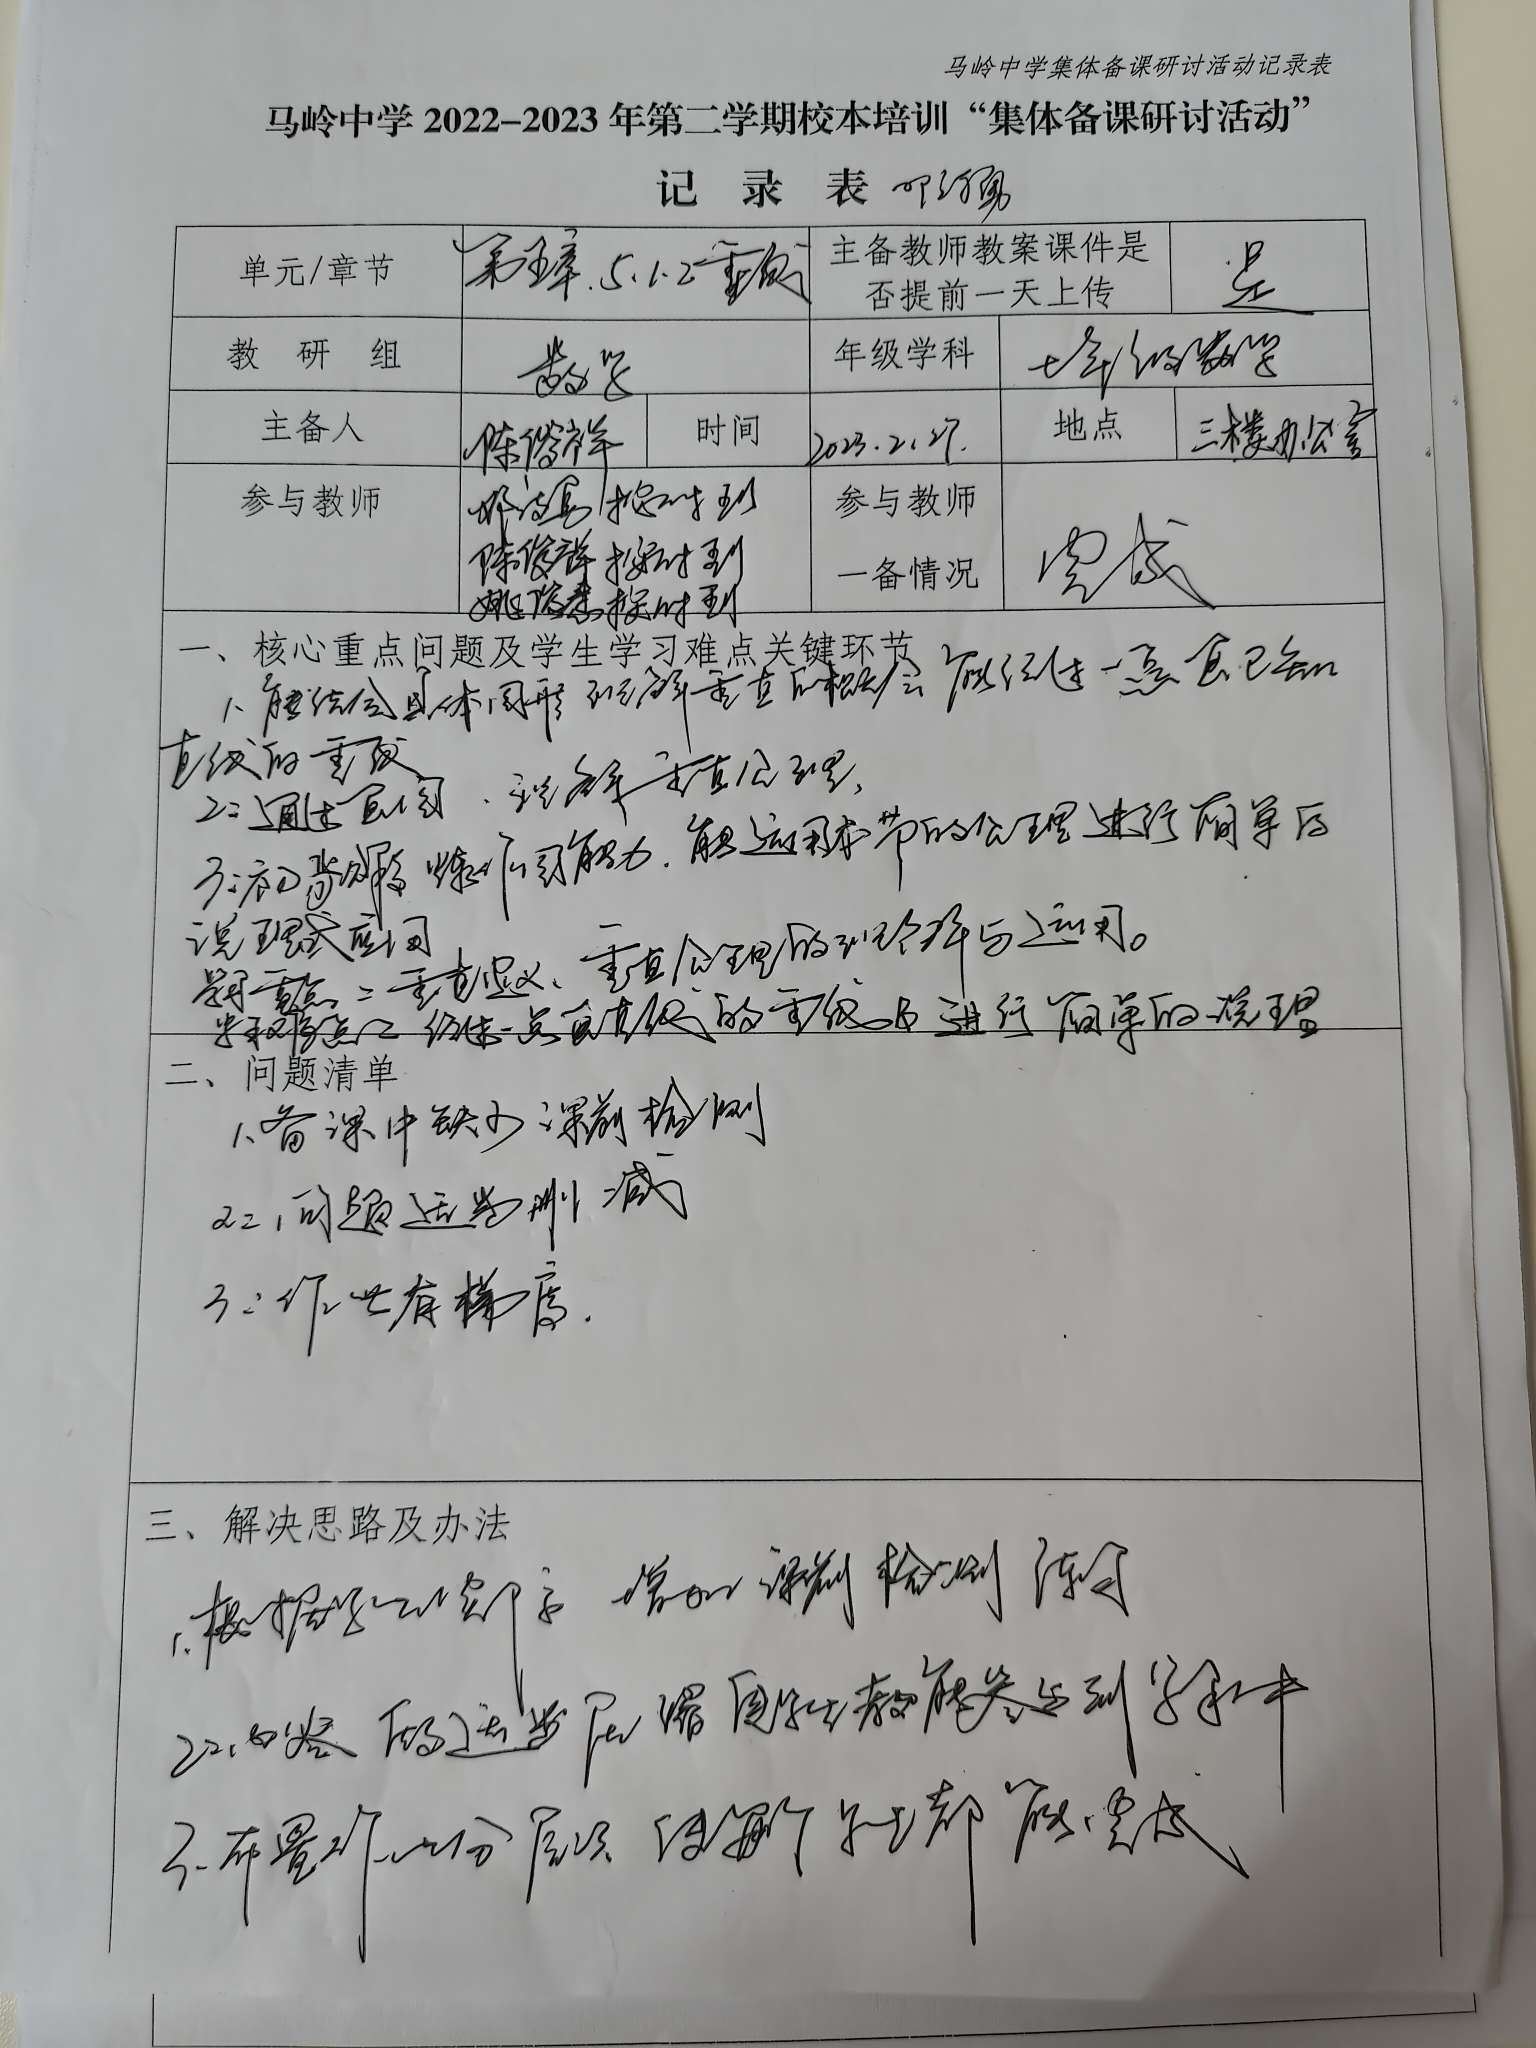 马岭中学集体备课研讨活动记录表
马岭中学 2022-2023 年第二学期校本培训“集体备课研讨活动”
记 录 表
单元/章节 第五章.5.1.2垂线 主备教师教案课件是否提前一天上传 是
教 研 组 数学 年级学科 七年级数学
主备人 陈俊祥 时间 2023.2.27. 地点 三楼办公室
参与教师 按时到 参与教师
陈俊祥 按时到 一备情况 完成
按时到
一、核心重点问题及学生学习难点关键环节
1、能结合具体图形理解垂直的概念 能经过一点画已知
直线的垂线
2：通过画图、理解垂直公理，
3：初步 作图能力.能运用本节的公理进行简单的
说理或应用
重点：垂直定义、垂直公理的理解与运用。
难点：经过一点画直线的垂线及进行简单的说理
二、问题清单
1、备课中缺少课前检测
2：问题适当删减
3：作业有梯度.
三、解决思路及办法
1.根据学 增加课前检测练习
2：内容的适当 学生都能参与到学习中
3.布置作业分层次 使每个学生都能完成